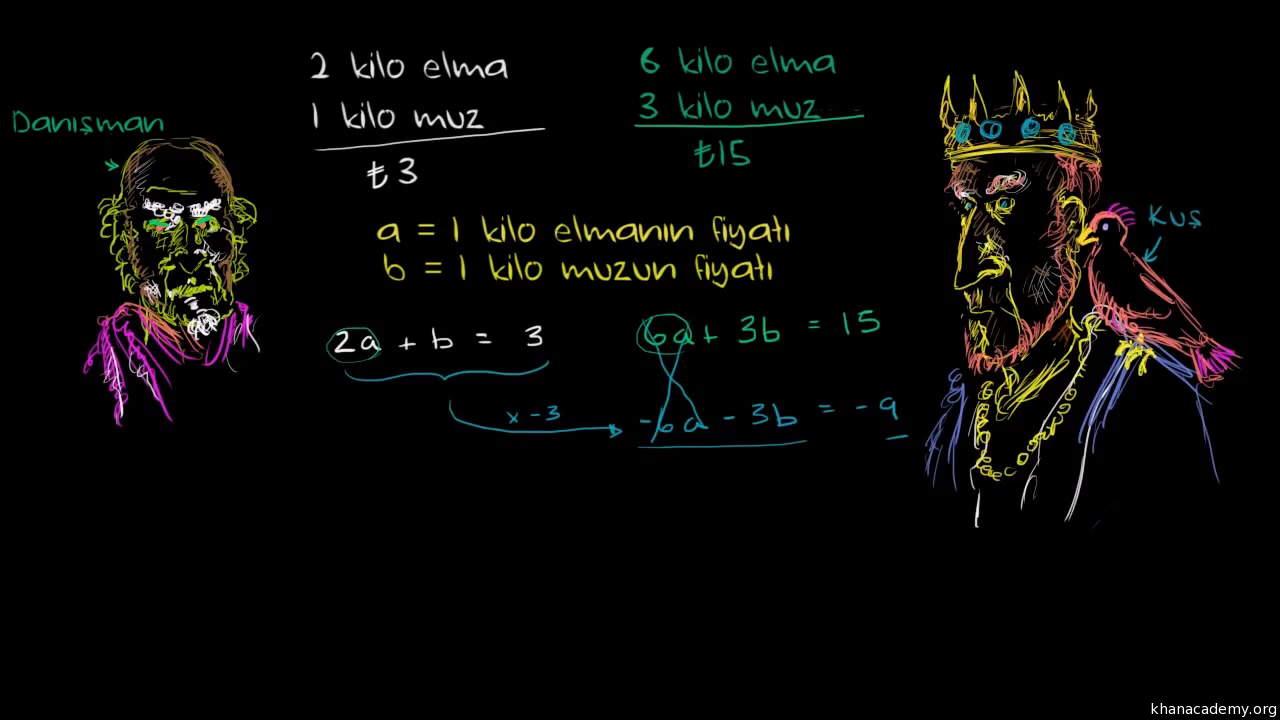 Danışman
2 kilo elma
1 kilo muz
₺3
6 kilo elma
3 kilo muz
₺15
a = 1 kilo elmanın fiyatı
b = 1 kilo muzun fiyatı
2a + b = 3
6a + 3b = 15
x -3
-6a - 3b = -9
Kuş
khanacademy.org